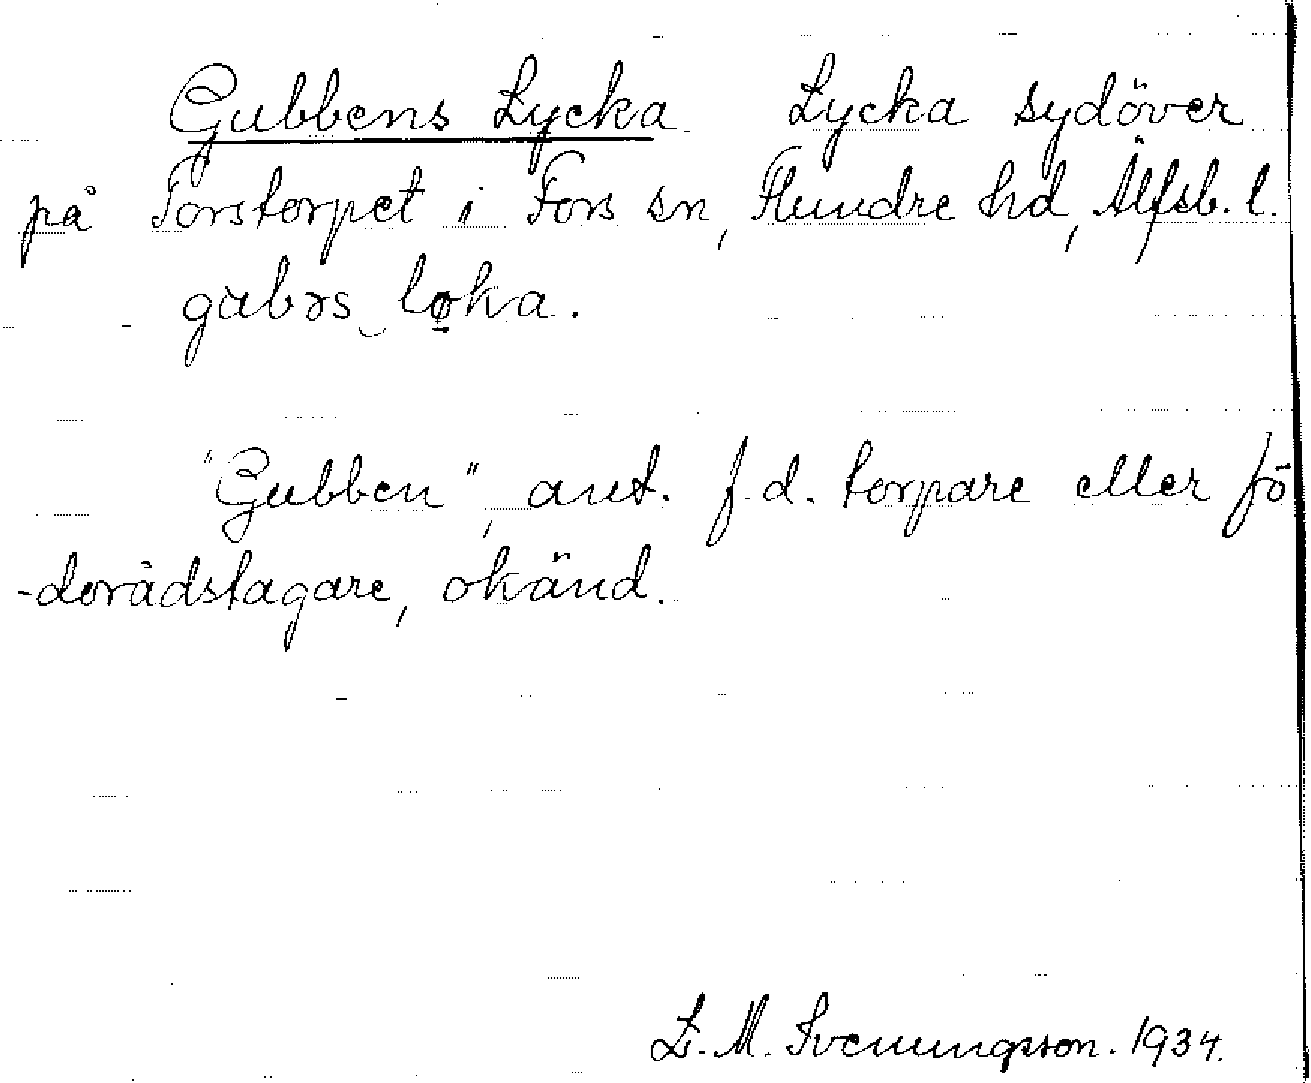 Gubbens Lycka Lycka sydöver
på Torstorpet i Fors sn, Flundre hd, Älfsb. l.
gubəs‿løka.
"Gubben", ant. f.d. torpare eller fö
-dorådstagare, okänd.
L. M. Svenungsson. 1934.